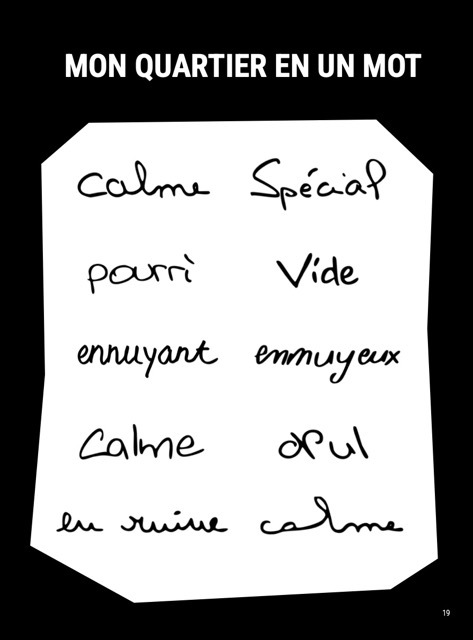 MON QUARTIER EN UN MOT
calme Spécial
pourri Vide
ennuyant ennuyeux
Calme
en ruine calme
19